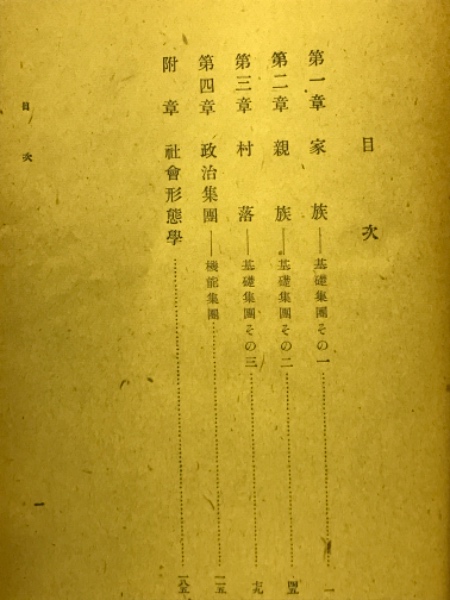 目次
第一章 家族——基礎集團その一……一
第二章 親族——基礎集團その二……四五
第三章 村落——基礎集團その三……七九
第四章 政治集團——機能集團……一二五
附章 社會形態學……一八五
目次
一